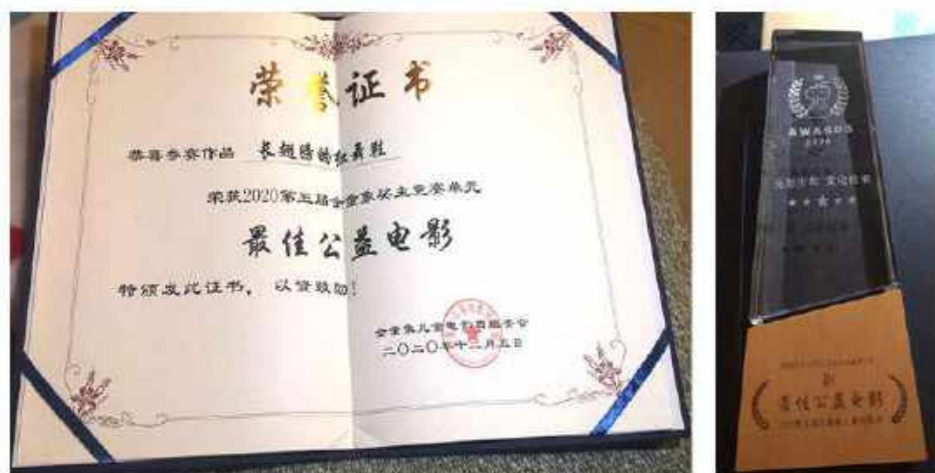 荣誉证书
恭喜参赛作品 长翅膀的红舞鞋
荣获2020第五届金童象奖主竞赛单元
最佳公益电影
特颁发此证书，以资鼓励！
金童象儿童电影周组委会
二〇二〇年十二月五日
AWARDS
2020
最佳公益电影